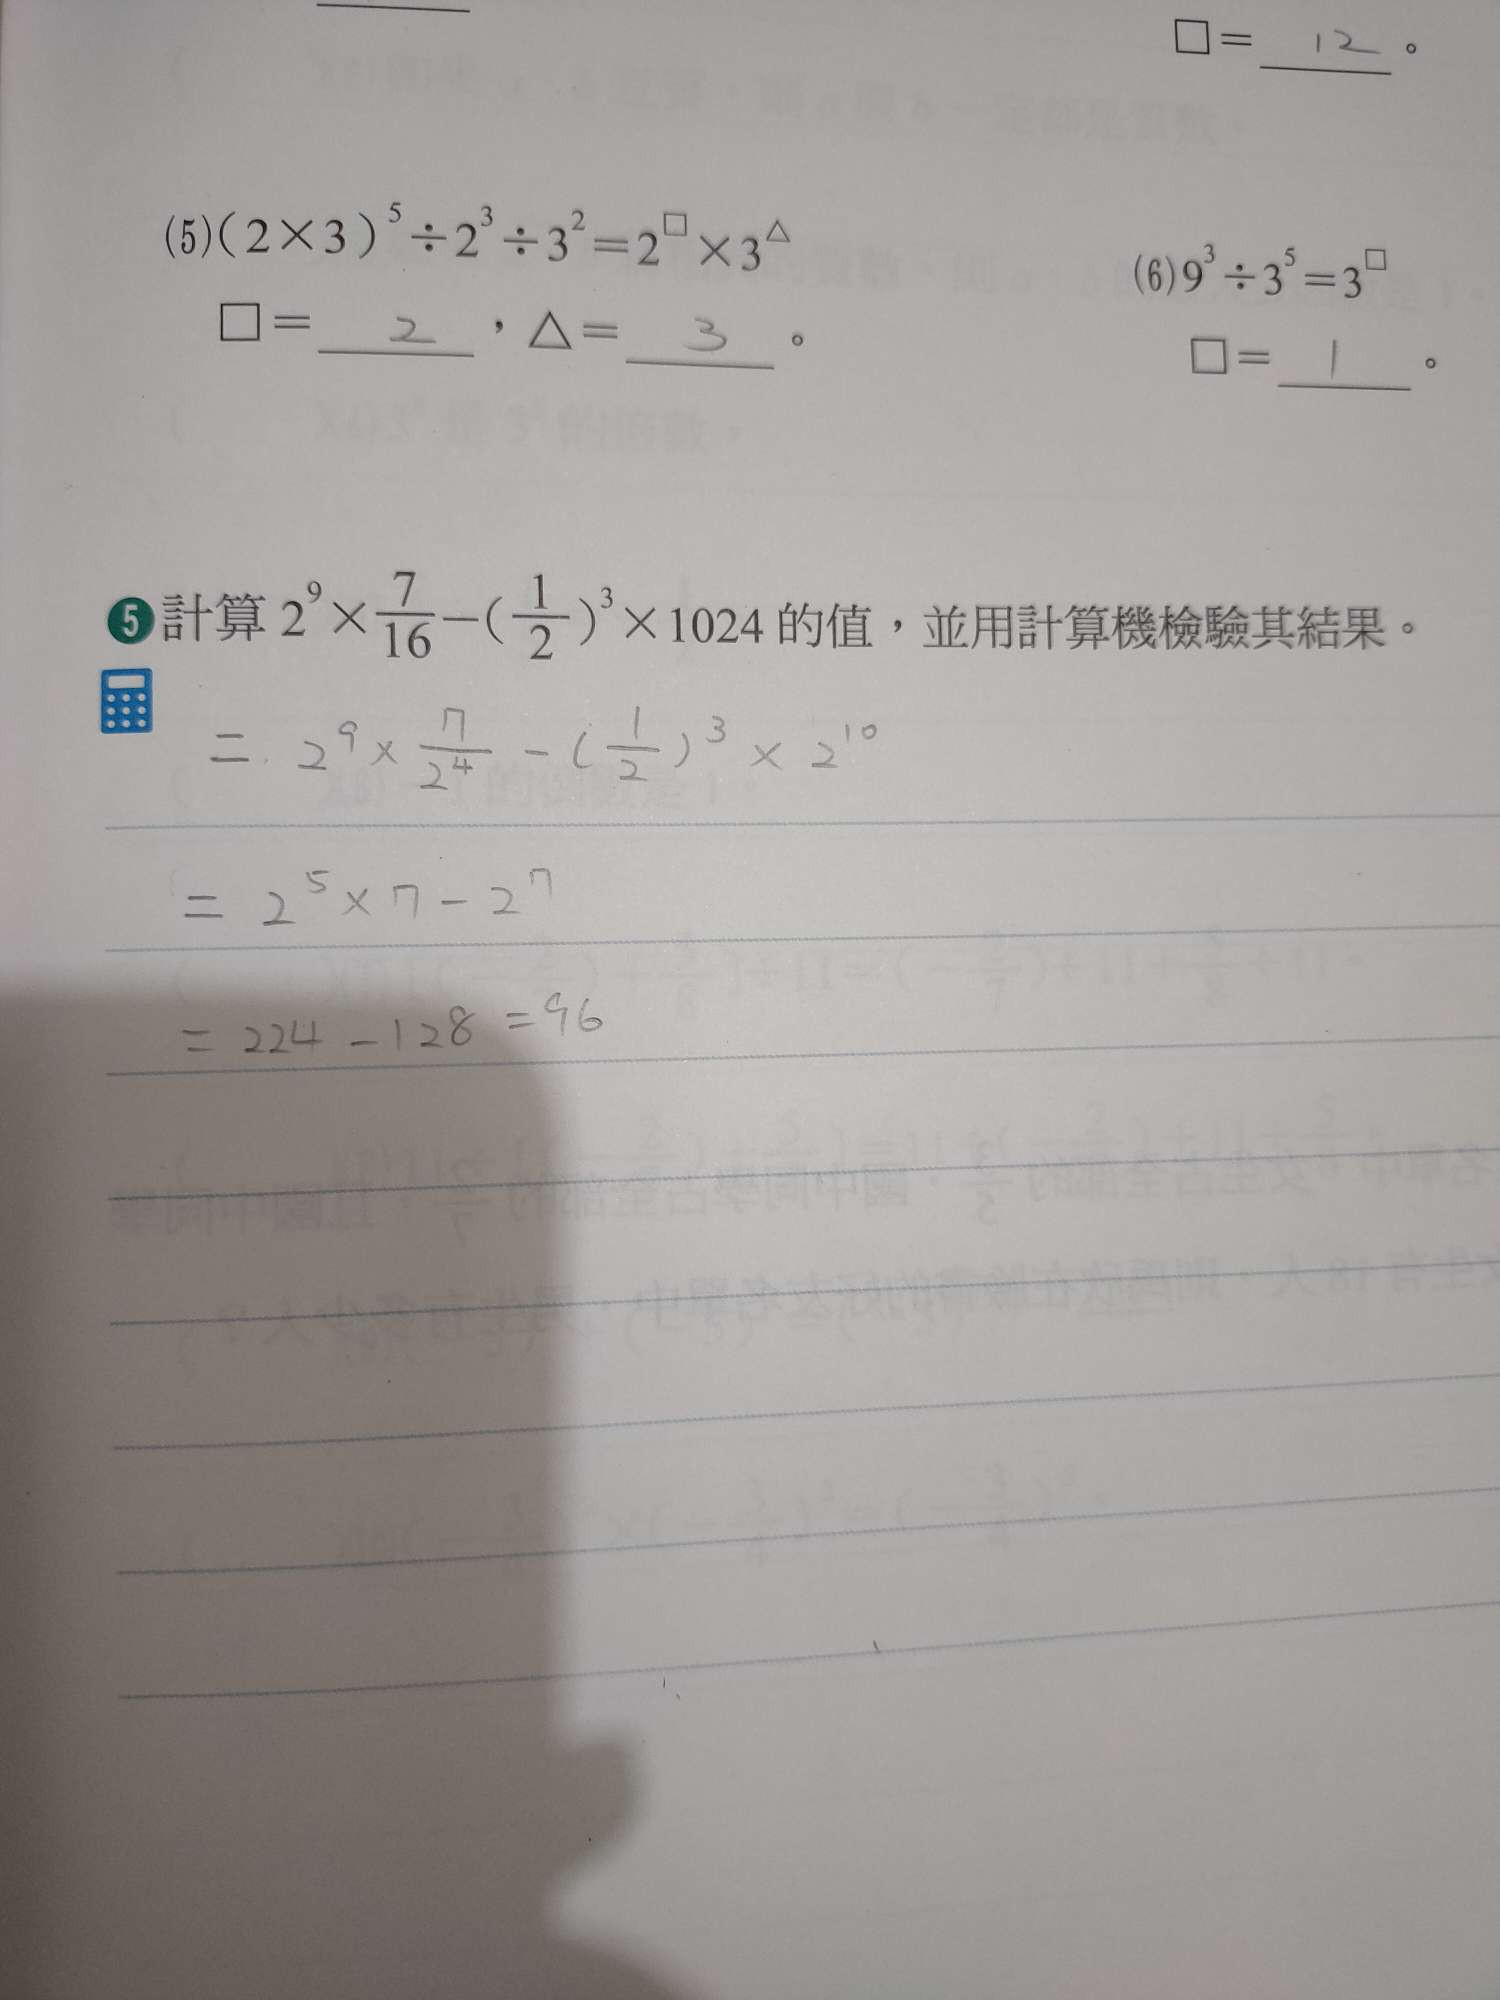 □= 12 。
(5)(2×3)⁵÷2³÷3²=2^□×3^△
□= 2 ，△= 3 。
(6)9³÷3⁵=3^□
□= 1 。
5 計算 2⁹×7/16−(1/2)³×1024 的值，並用計算機檢驗其結果。
= 2⁹×7/2⁴−(1/2)³×2¹⁰
= 2⁵×7−2⁷
= 224−128=96